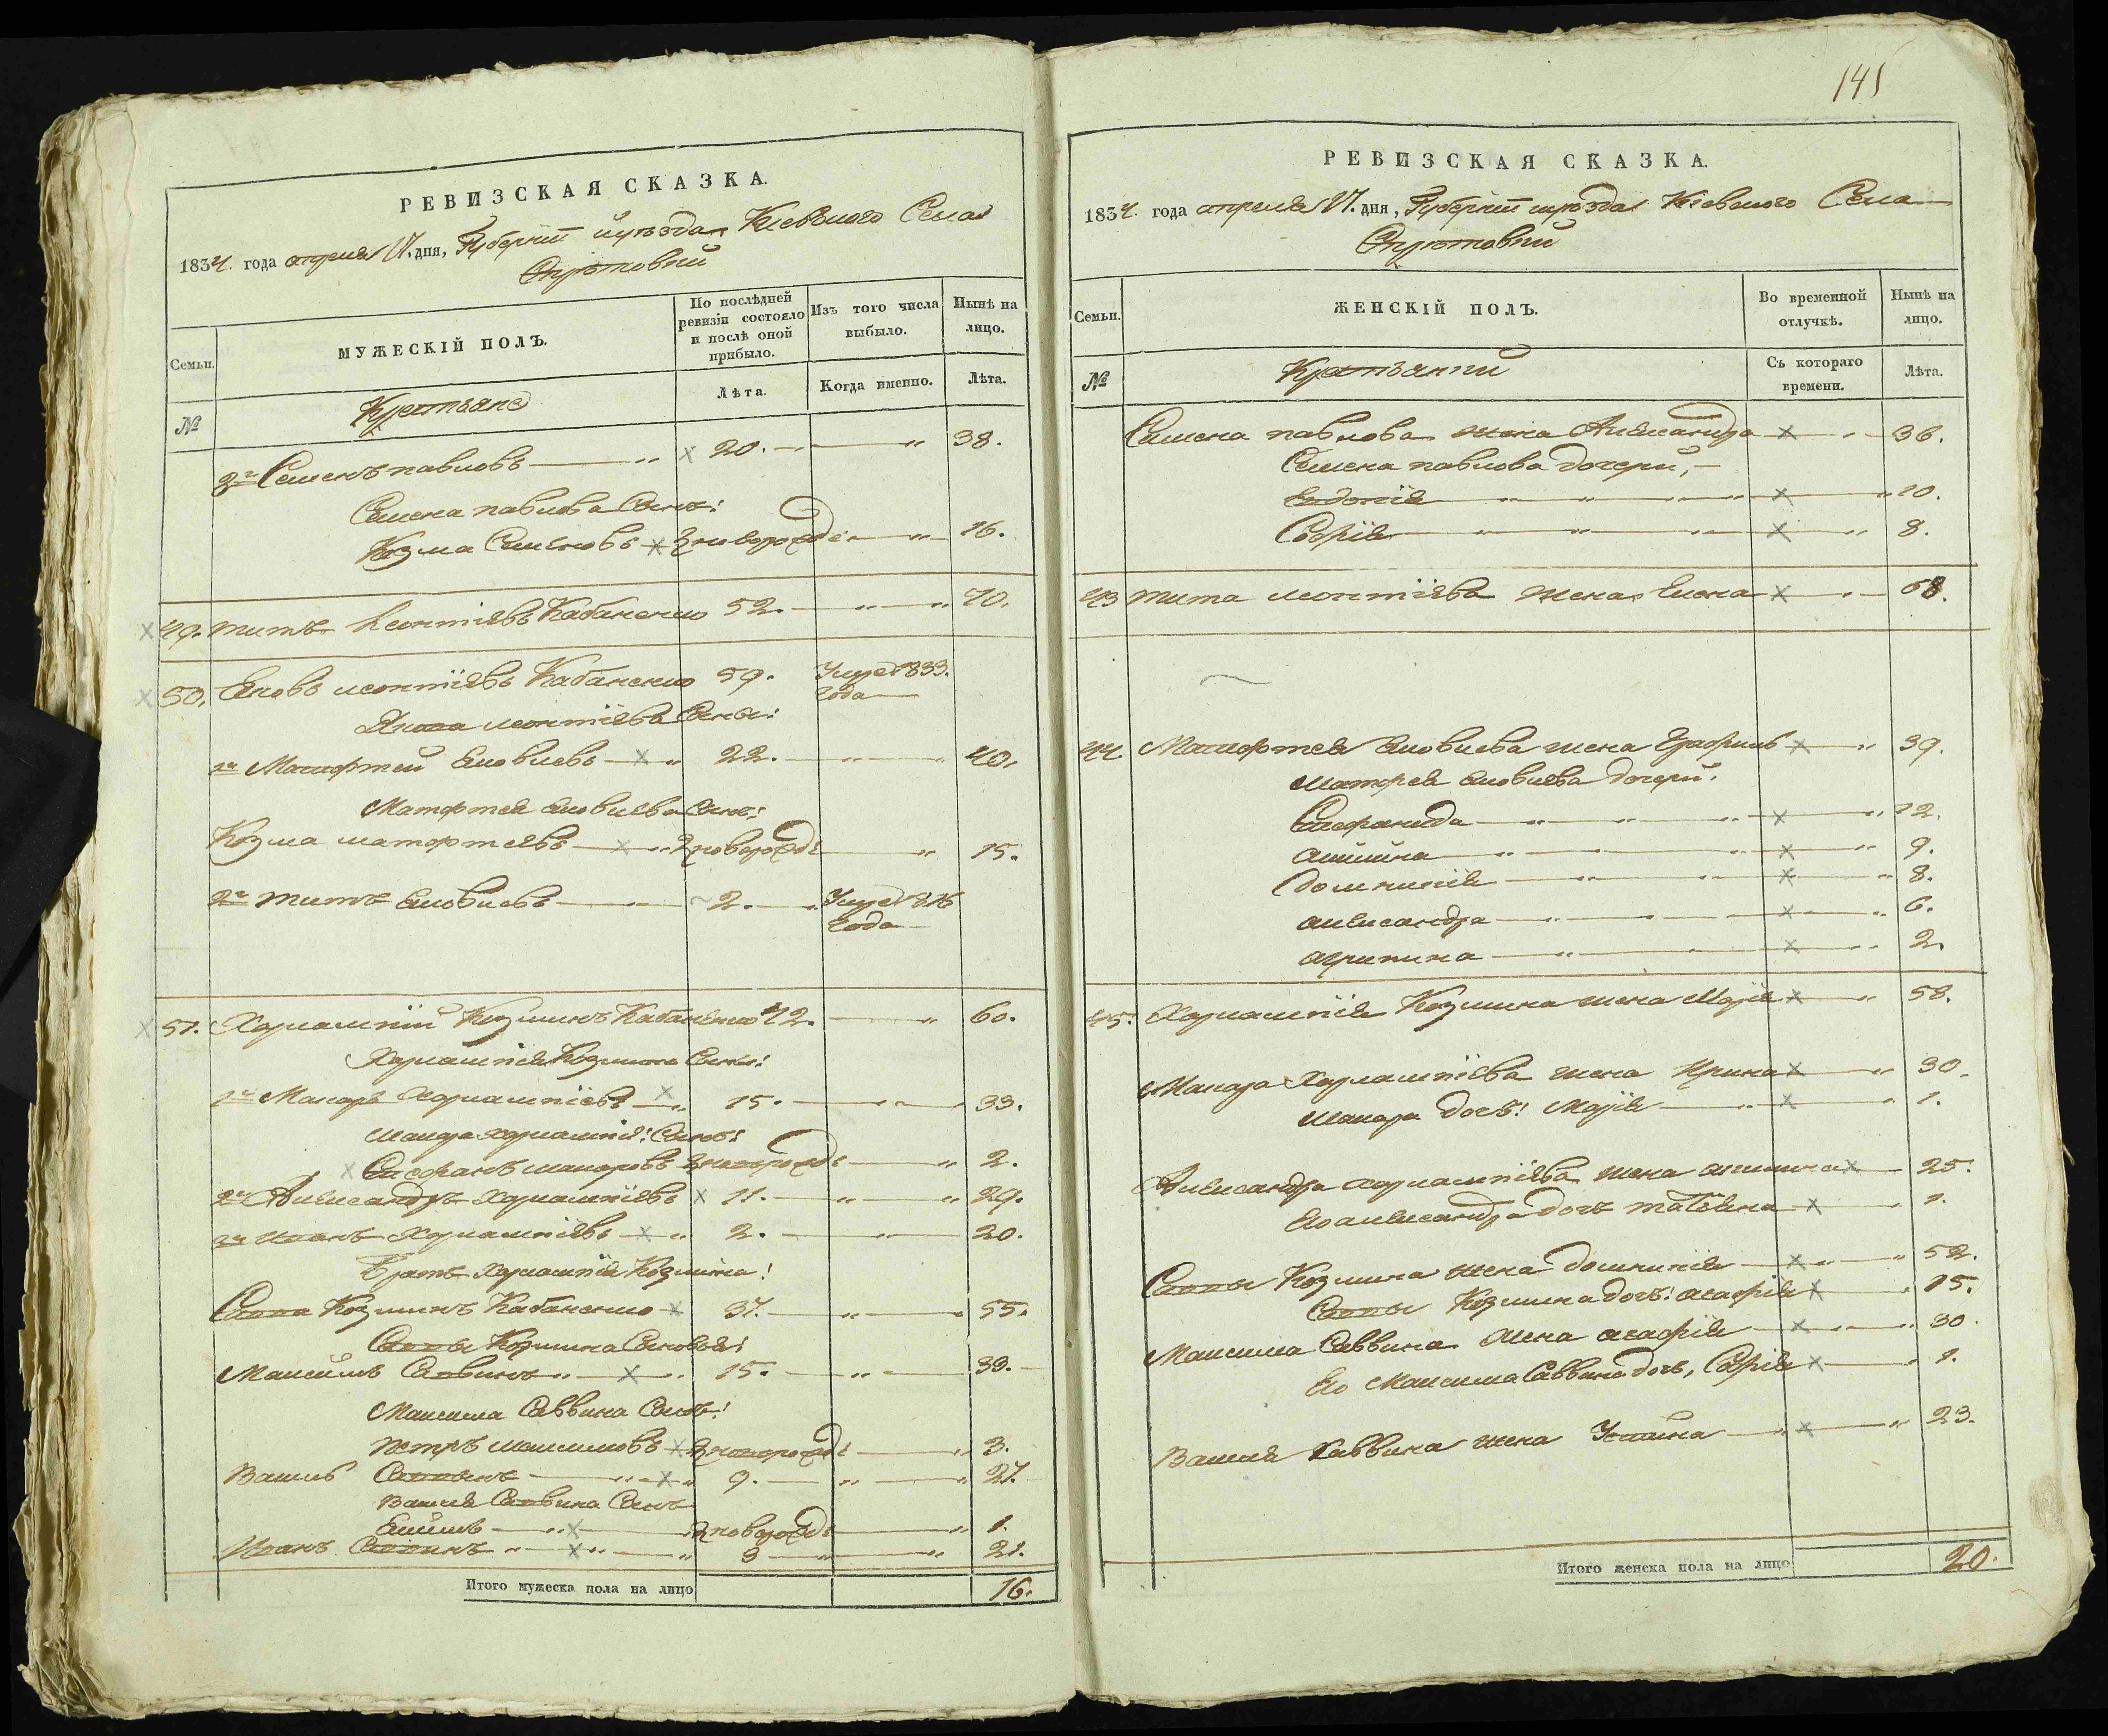 РЕВИЗСКАЯ СКАЗКА.
1834. года апреля 17. дня, Губернiи и уѣзда Кiевскаго Села
МУЖЕСКIЙ ПОЛЪ.
Семьи.
По послѣдней ревизiи состояло и послѣ оной прибыло.
Изъ того числа выбыло.
Нынѣ на лицо.
№
Крестьяне
Лѣта.
Когда именно.
Лѣта.
2й Семенъ павловъ 20. 38.
Семена павлова Сынъ:
Козма Семеновъ новорожд: 16.
49. титъ Леонтiевъ Кабаненко 52. 70.
50. Яковъ леонтiевъ Кабаненко 59. Умре 1833. года
Якова леонтiева Сыны:
1й Матфтей Яковлевъ 22. 40.
Матфтея Яковлева Сынъ:
Козма матфтеевъ новорожд: 15.
2й титъ Яковлевъ 2. Умре 1816 года
51. Харлампiй Козминъ Кабаненко 42. 60.
Харлампiя Козмина Сыны:
1й Макаръ Харлампiевъ 15. 33.
Макара харлампiя: Сынъ:
Стефанъ макаровъ новорожд: 2.
2й Александръ харлампiевъ 11. 29.
3й Иванъ Харлампiевъ 2. 20.
Братъ Харлампiя Козмина!
Савва Козминъ Кабаненко 37. 55.
Саввы Козмина Сыновья:
Максимъ Саввинъ 15. 33.
Максима Саввина Сынъ!
петръ максимовъ новорожд: 3.
Василь Саввинъ 9. 27.
Василя Саввина Сынъ
Екимъ новорожд: 1.
Иванъ Саввинъ 3 21.
Итого мужеска пола на лицо 16.
141
РЕВИЗСКАЯ СКАЗКА.
1834. года апреля 17. дня, Губернiи и уѣзда Кiевского Села
Семьи.
ЖЕНСКIЙ ПОЛЪ.
Во временной отлучкѣ.
Нынѣ на лицо.
№
Крестьянки
Съ котораго времени.
Лѣта.
Семена павлова жена Александра 36.
Семена павлова дочери,
Евдокiя 10.
Софiя 8.
43 тита леонтiева жена Елена 68.
44. Матфтея Яковлева жена 39.
Матфея Яковлева дочери:
Стефанида 12.
акилина 9.
домникiя 8.
александра 6.
агрипина 2.
45. Харлампiя Козмина жена Марiя 58.
Макара Харлампiева жена Ирина 30.
Макара дочь! Марiя 1.
Александра харлампiева жена 25.
Его александра дочь татiяна 1.
Саввы Козмина жена домникiя 52.
Саввы Козмина дочь: агафiя 15.
Максима Саввина жена агафiя 30.
Его Максима Саввина дочь, Софiя 1.
Василя Саввина жена Устина 23.
Итого женска пола на лицо 20.